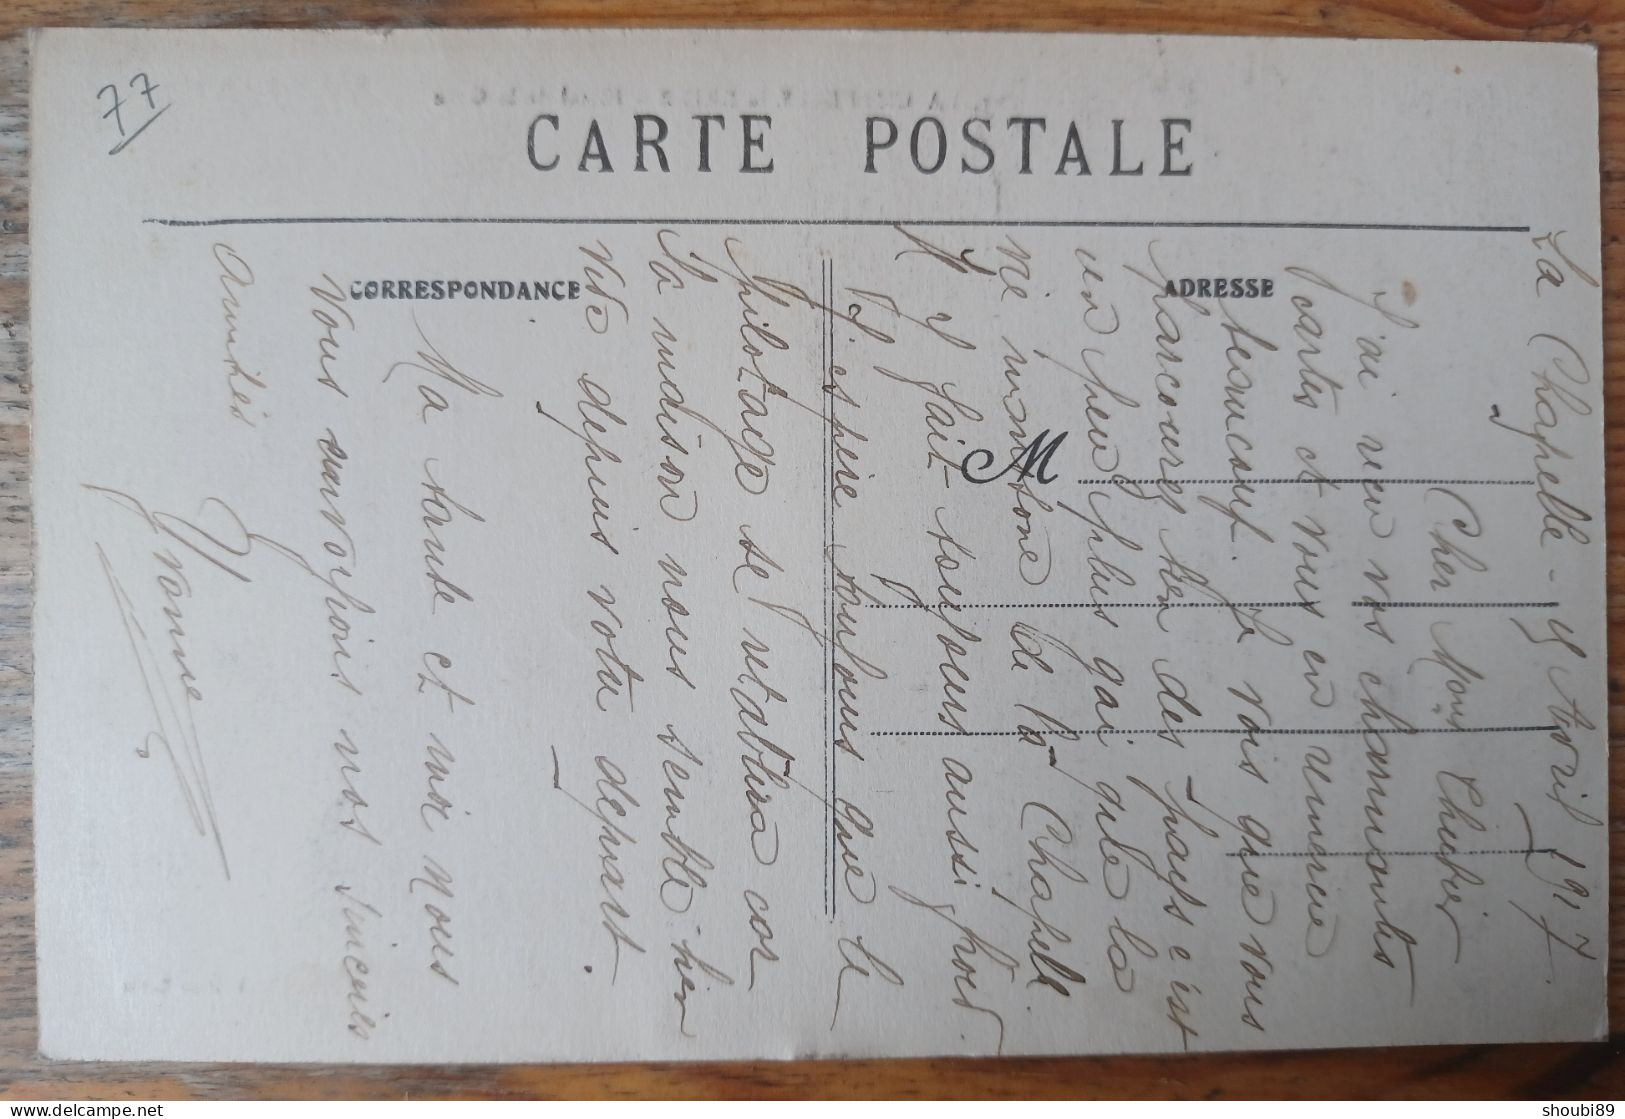 77
CARTE POSTALE
CORRESPONDANCE
ADRESSE
M
La Chapelle - 15 Avril 1917.
Cher Mons Theutier
J'ai reçu vos charmantes
cartes et vous en remercie
beaucoup. Je vois que vous
parcourez bien des pays c'est
un peu plus gai que la
vie monotone de la Chapelle.
Il fait toujours aussi froid.
J'espère toujours que le
pilotage se rétablira car
la maison nous semble bien
vide depuis votre départ.
Ma tante et moi nous
vous envoyons nos sincères
amitiés
Yvonne
shoubi89